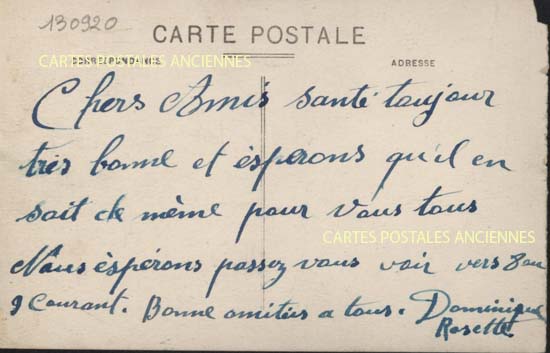 130920
CARTE POSTALE
CARTES POSTALES ANCIENNES
CORRESPONDANCE
ADRESSE
Chers Amis santé toujour
très bonne et èsperons qu'il en
sait de même pour Vous tous
CARTES POSTALES ANCIENNES
Nous èspérons passez vous voir vers 8 ou
9 Courant. Bonne amitiés a tous. Dominique
Rosette